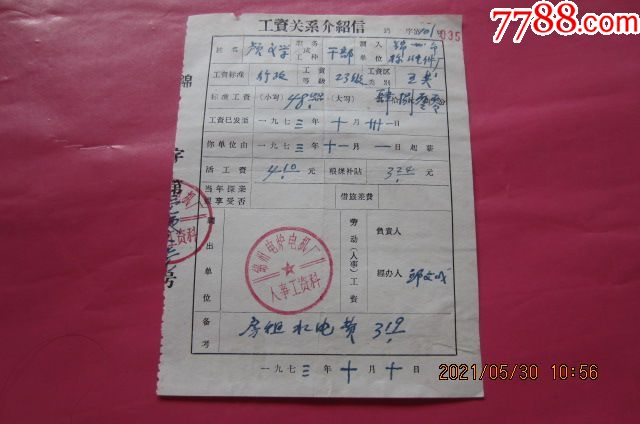 7788.com
工資关系介紹信
字第401号
035
姓名 顏文学 职务或工种 干部 調入单位 錦州市
工資标准 行政 工資等級 23級 工資区类别 五类
标准工資 (小写) 48.00 (大写) 肆拾捌 零零
工資已发至 一九七三年十月卅一日
你单位由 一九七三年十一月一日起薪
活工資 4.10元 粮煤补貼 3.24元
当年探亲假享受否 借旅差費
調出单位 劳动(人事)工資 負責人
經办人
錦州电炉电机厂
人事工資科
备考 房租水电費 3.19
一九七三年十月十日
錦
字第
号
工資科
2021/05/30 10:56